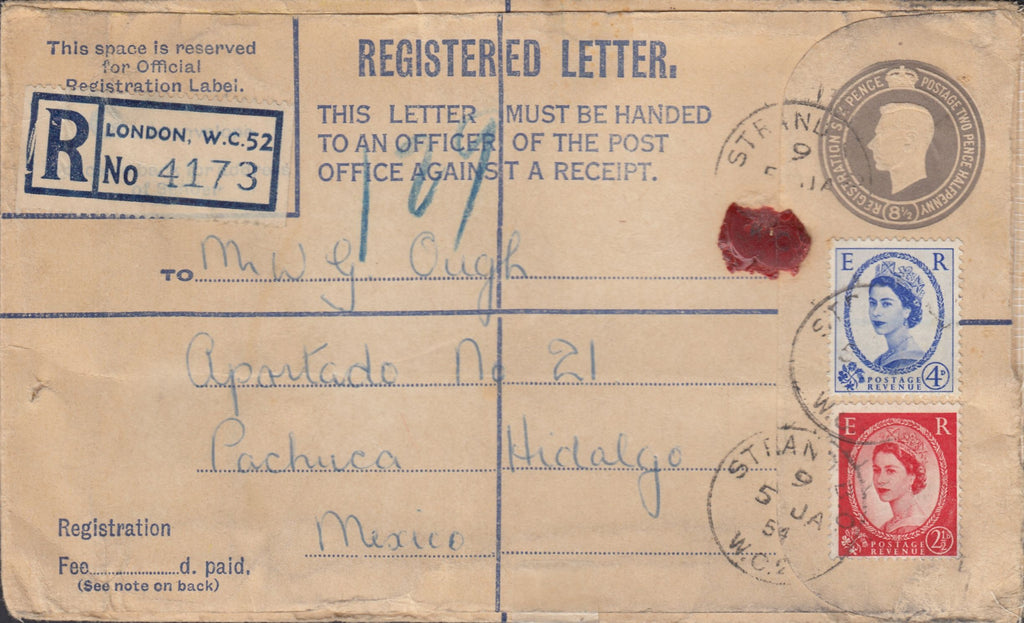 This space is reserved
for Official
Registration Label.
R
LONDON, W.C.52
No 4173
REGISTERED LETTER.
THIS LETTER MUST BE HANDED
TO AN OFFICER OF THE POST
OFFICE AGAINST A RECEIPT.
189
REGISTRATION SIX PENCE POSTAGE TWO PENCE HALFPENNY
(8½)
STRAND
9
5 JA
TO Mr W G. Ough
Apartado No 21
Pachuca Hidalgo
Mexico
E R
POSTAGE
REVENUE 4D
W.C.
E R
POSTAGE
REVENUE 2½D
STRAND
9
5 JA
54
W.C.2
Registration
Fee d. paid.
(See note on back)